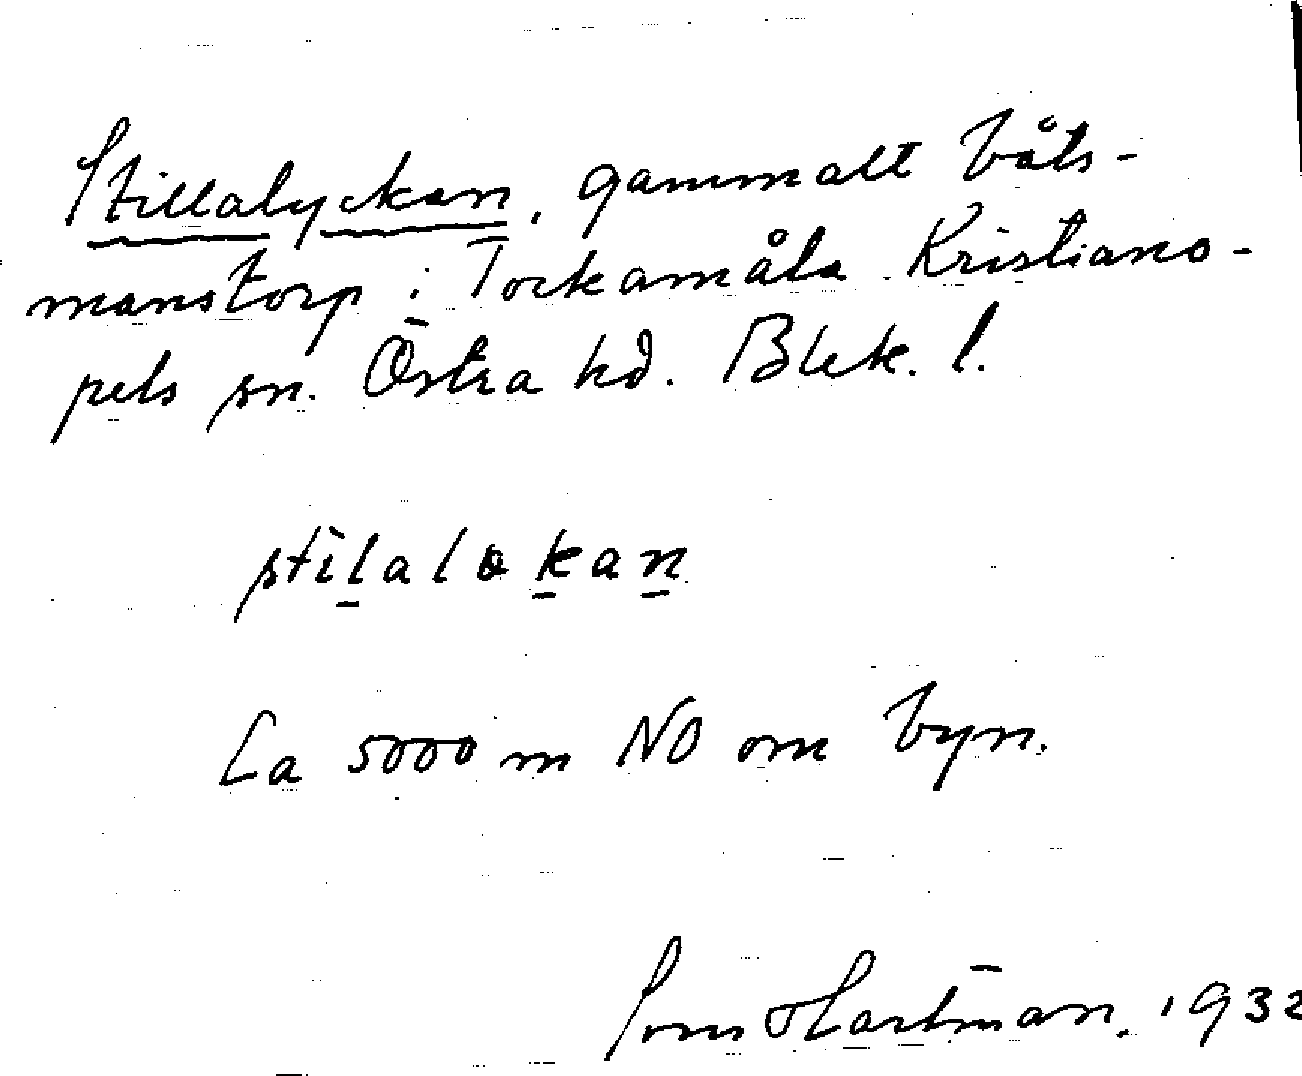 Stillalyckan, gammalt båts-
manstorp i Tockamåla Kristiano-
pels sn. Östra hd. Blek. l.
stilalokan
Ca 5000 m NO om byn.
Hartman, 1932